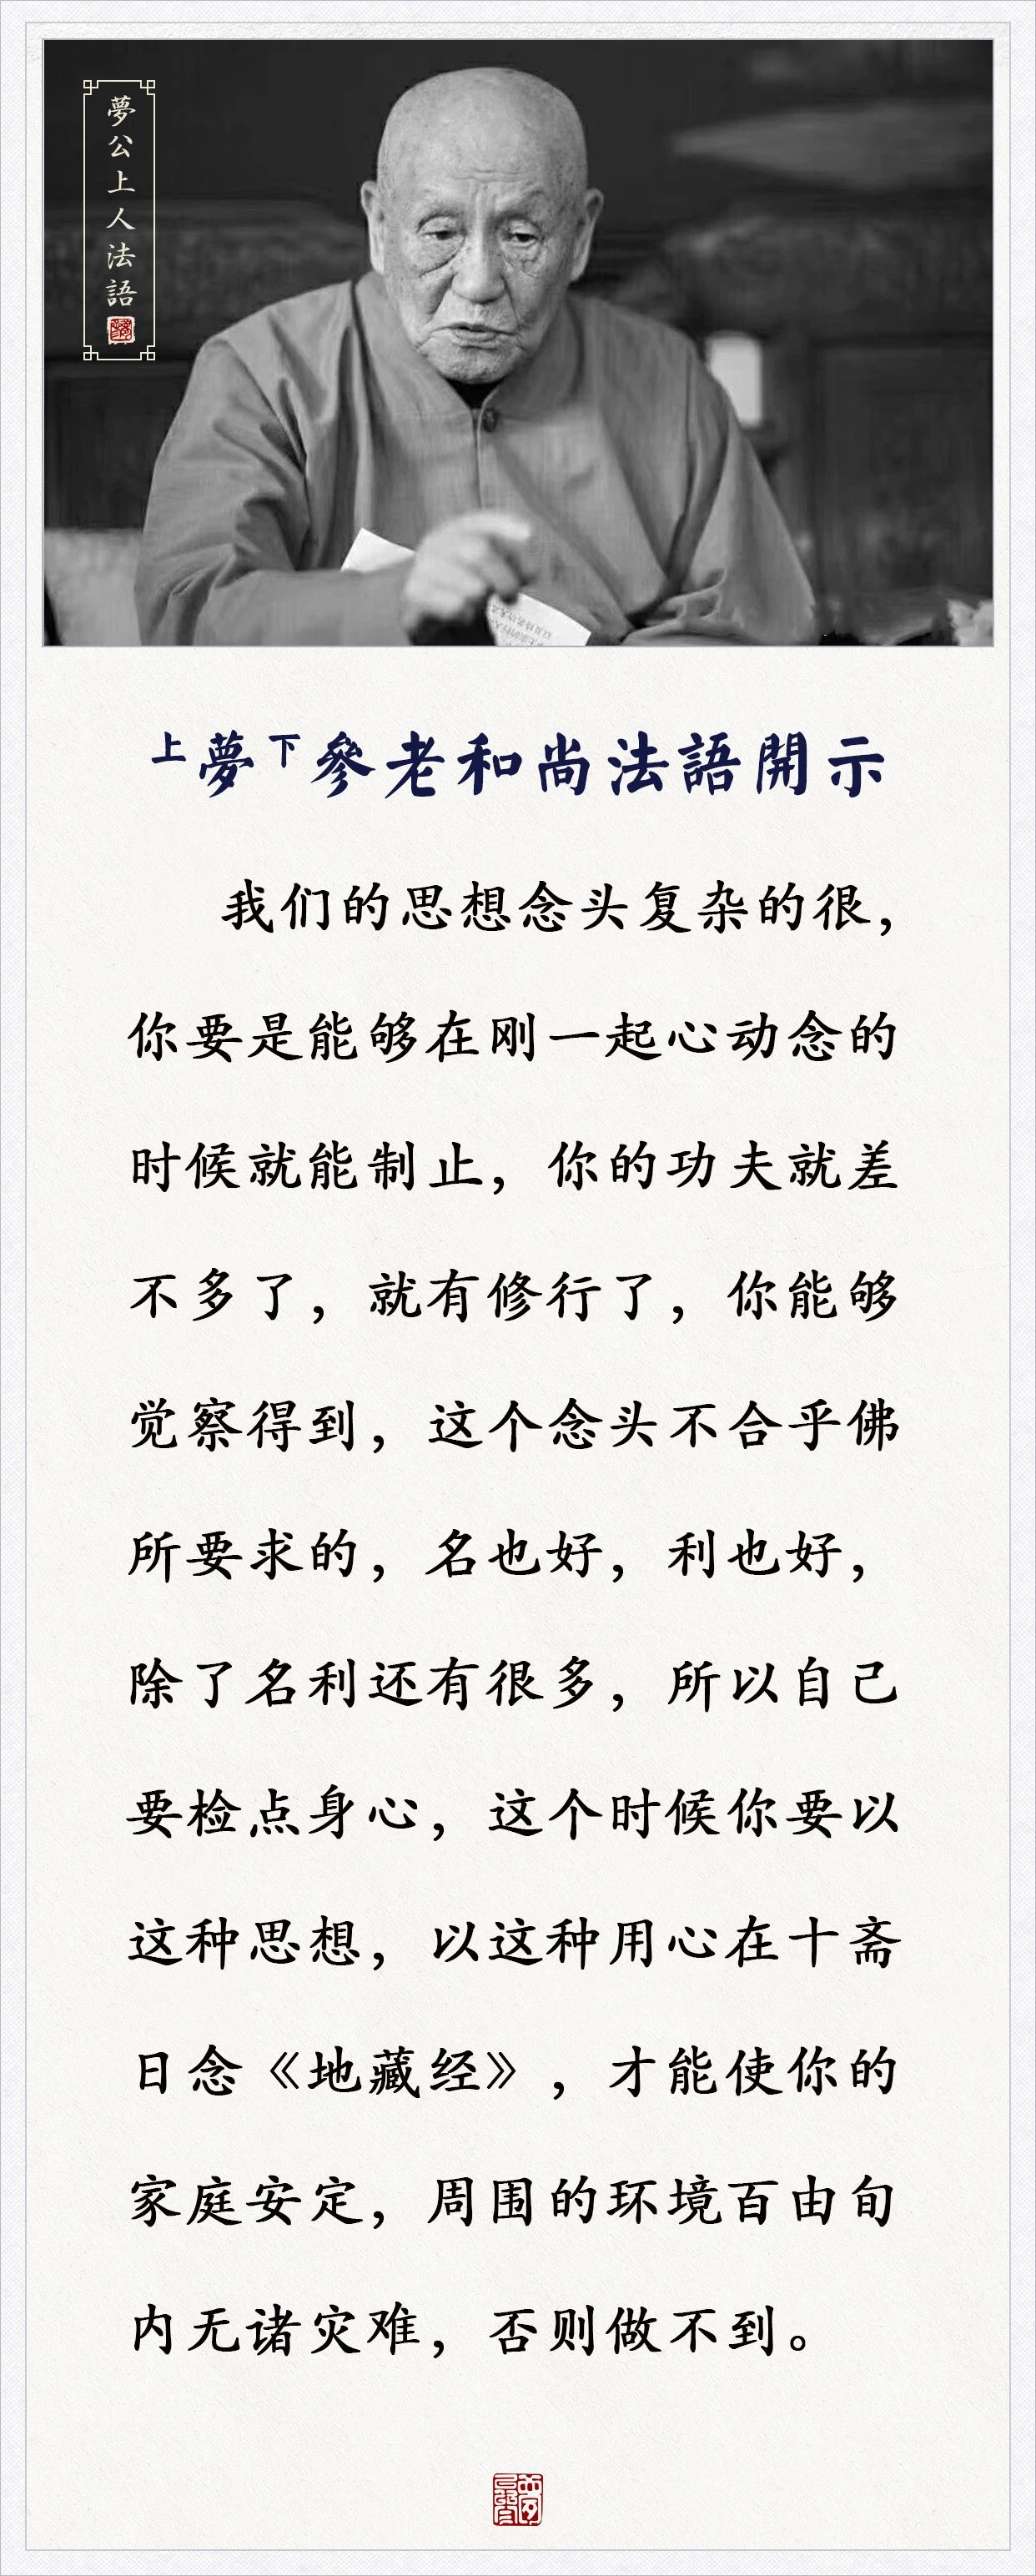 夢公上人法語
上夢下參老和尚法語開示
我们的思想念头复杂的很，
你要是能够在刚一起心动念的
时候就能制止，你的功夫就差
不多了，就有修行了，你能够
觉察得到，这个念头不合乎佛
所要求的，名也好，利也好，
除了名利还有很多，所以自己
要检点身心，这个时候你要以
这种思想，以这种用心在十斋
日念《地藏经》，才能使你的
家庭安定，周围的环境百由旬
内无诸灾难，否则做不到。